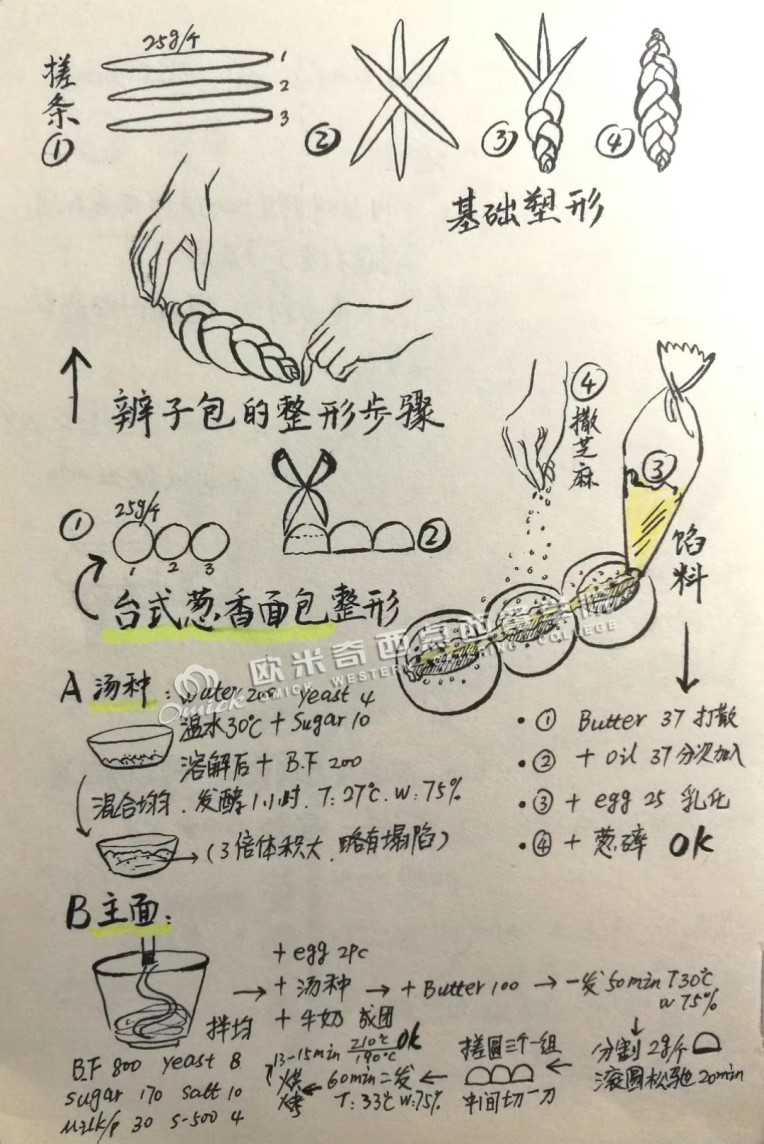 搓条
①
25g/个
1
2
3
②
③
④
基础塑形
辫子包的整形步骤
④撒芝麻
③
馅料
①
25g/个
1 2 3
②
台式葱香面包整形
欧米奇西点西餐学院
Omick OMICK WESTERN COLLEGE
A 汤种: water 200 yeast 4
温水30℃ + Sugar 10
溶解后 + B.F 200
混合均匀. 发酵1小时. T: 27℃. W: 75%
(3倍体积大.略有塌陷)
• ① Butter 37 打散
• ② + oil 37 分次加入
• ③ + egg 25 乳化
• ④ + 葱碎 OK
B主面:
拌均
+ egg 2pc
+ 汤种
+ 牛奶 成团
+ Butter 100
一发 50min T30℃
W 75%
分割 2g/个
滚圆松驰 20min
搓圆三个一组
中间切一刀
60min 二发
T: 33℃ W: 75%
烘烤
13-15min 210℃ OK
190℃
B.F 800 yeast 8
sugar 170 salt 10
milk/p 30 S-500 4